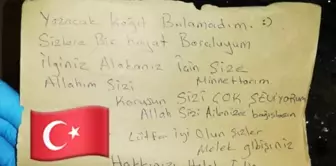 Yazacak Kağıt Bulamadım. :)
Sizlere Bir hayat Borçluyum
İlginiz Alakanız İçin Size
Minnettarım
Allahım Sizi
Korusun Sizi ÇOK SEVİYORUM
Allah Sizi Ailenize bağışlasın
Lütfen İyi Olun Sizler
Melek gibisiniz
Hakkınızı Helal